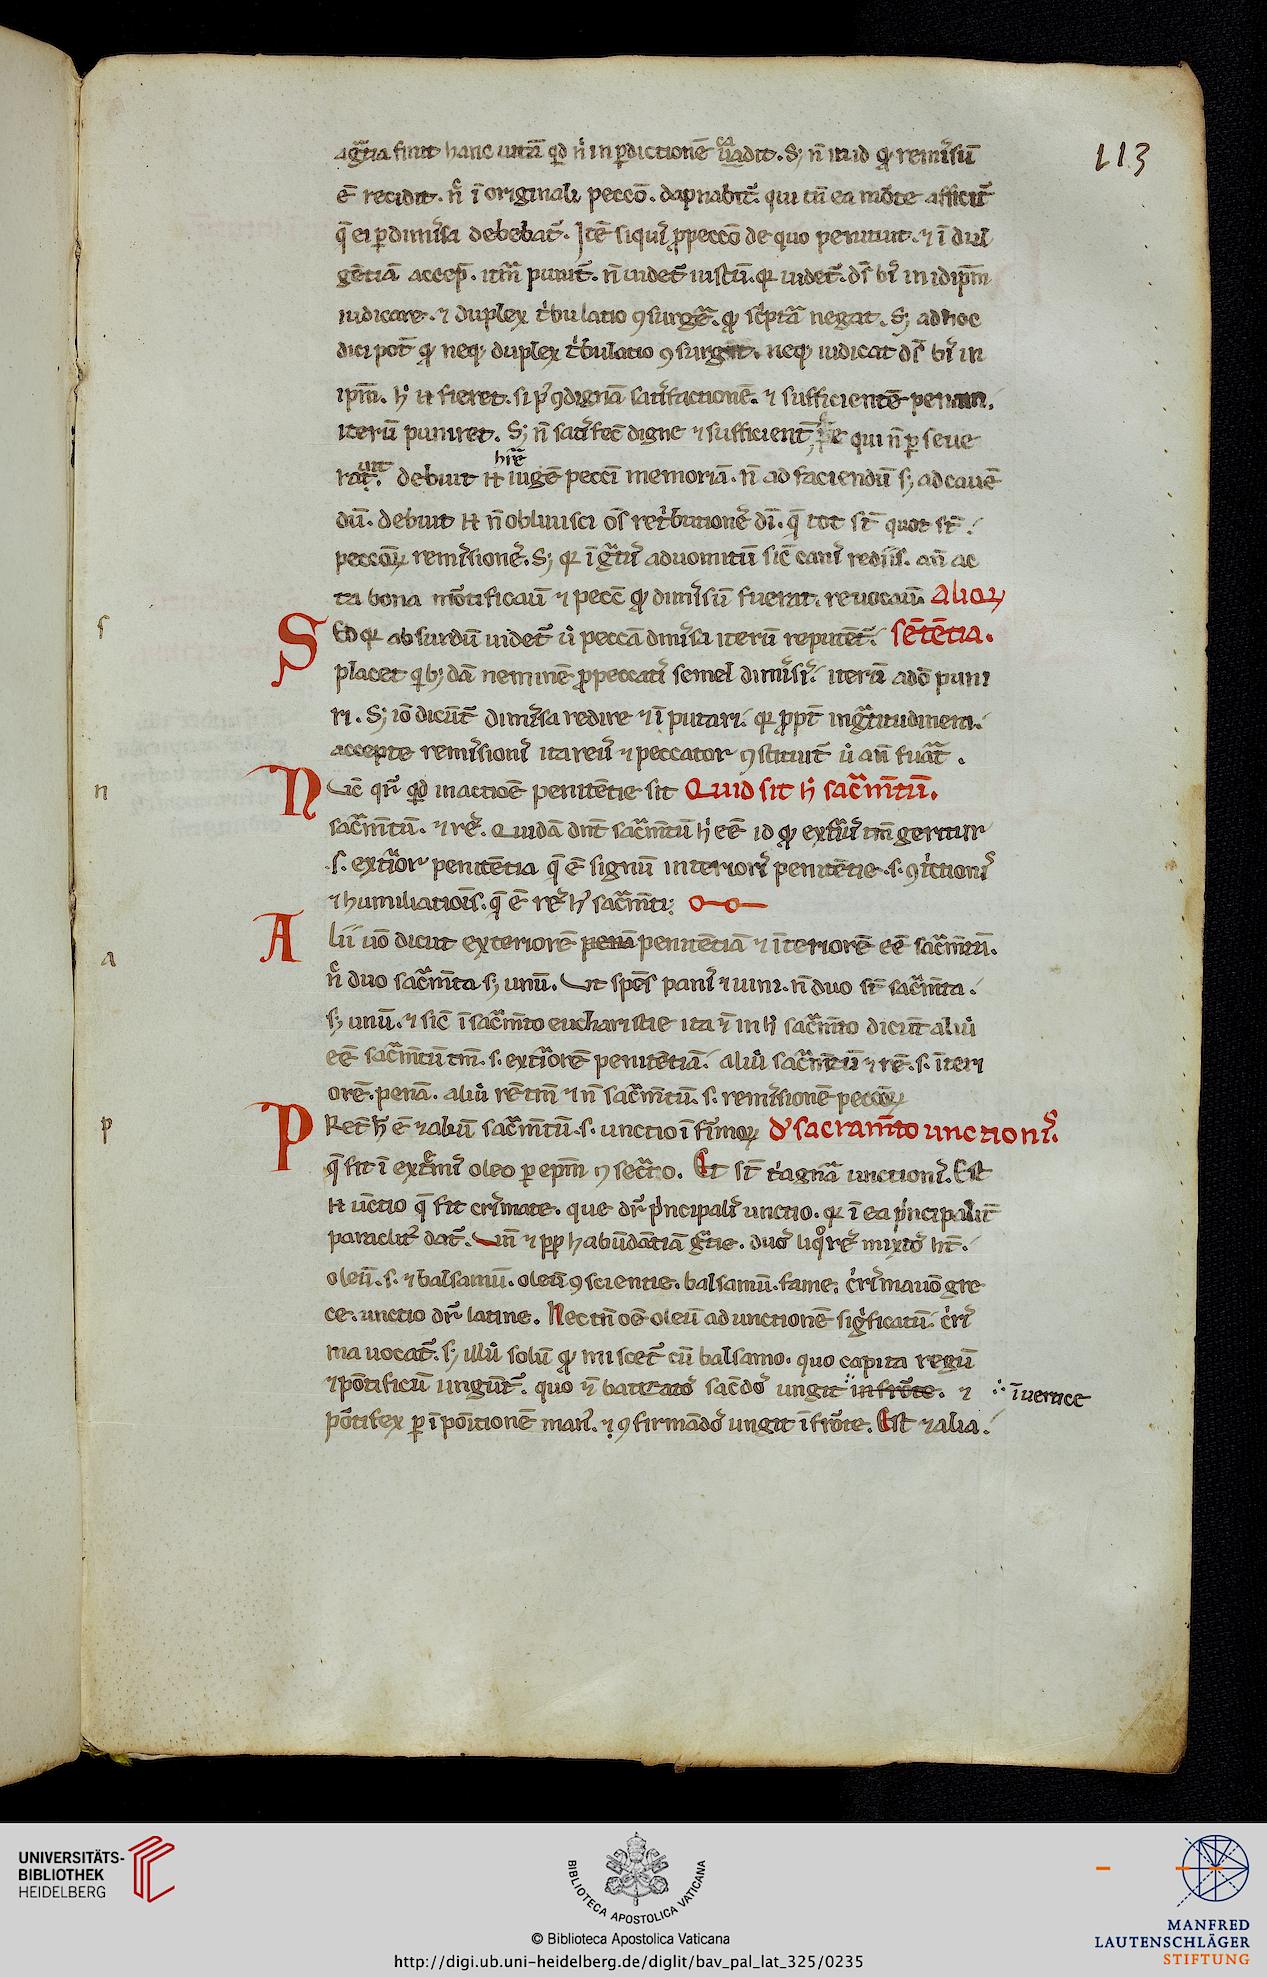 113
agr̄tia finit hanc uitā qd̄ n̄ in ꝑdictionē uadit. Sꝫ n̄ in id qđ remissū
ē recidit. n̄ ī originali peccō. dapnabit᷑. qui cū ea morte afficit᷑
q̄ ei ꝑdimissa debebat᷑. Itē si quis ꝓ peccō de quo penituit. ⁊ ī dul
gētiā accep̄. itm̄ punit᷑. n̄ uidet᷑ iustū. qꝛ uidet᷑. ds̄ bis in idipm̄
iudicare. ⁊ duplex t'bulatio ꝯsurgē. qđ sc'ptā negat. Sꝫ ad hoc
dici pot̄ qđ neqꝫ duplex t'bulatio ꝯsurget. neqꝫ iudicat ds̄ bis in
ipm̄. h' .n. fieret. si p' ꝯdignā satisfactionē. ⁊ sufficientē penam.
iterū puniret. Sꝫ n̄ satisfec̄ digne ⁊ sufficient᷑ qui n̄ ꝑseue
rauit. debuit .n. hr̄e iugē pecci memoriā. n̄ ad faciendū sꝫ ad cauē
dū. debuit .n. n̄ obliuisci oēs ret'butiones di. q̄ tot st̄ quot st̄
peccoꝝ remissiones. Sꝫ qꝛ īgr̄tus ad uomitū sic̄ canis rediis. an̄ ac
ta bona mortificauit ⁊ pecc̄ qđ dimissū fuerat. reuocauit. Alioꝝ
s
SEd qꝛ absurdū uidet᷑ ut pecca dimissa iterū reputēt᷑. sētētia.
placet qibꝫdā neminē ꝓ peccatis semel dimissis iterū a dō puni
ri. Sꝫ iō dicūt᷑ dimissa redire ⁊ īputari. qꝛ ꝓpt̄ ingr̄titudinem
accepte remissionis ita reus ⁊ peccator ꝯstituit᷑ ut an̄ fuāt.
n
Nūc qr̄ qd̄ in actiōe penitētie sit Quid sit h' sacr̄m̄tū.
sacr̄m̄tū. ⁊ res. Quidā dn̄t sacr̄m̄tū h' eē id qđ ext'ius tm̄ geritur
.s. ext'ior penitētia q̄ ē signū interioris penitētie .s. ꝯt'ctionis
⁊ humiliatiōis. q̄ ē res h' sacr̄m̄ti.
a
Alii uō dicūt exteriorē penā penitētiā ⁊ īteriorē eē sacr̄m̄tū.
n̄ duo sacr̄m̄ta sꝫ unū. Ut spēs panis ⁊ uini. n̄ duo st̄ sacr̄m̄ta.
sꝫ unū. ⁊ sic̄ ī sacr̄m̄to eucharistie ita ⁊ in h' sacr̄m̄to dicūt aliud
eē sacr̄m̄tū tm̄ .s. ext'iorē penitētiā. aliud sacr̄m̄tū ⁊ rē .s. īteri
orē. penā. aliud rē tm̄ ⁊ n̄ sacr̄m̄tū .s. remissionē peccoꝝ
p
Pret̄ h̄ ē ⁊ aliud sacr̄m̄tū .s. unctio īfirmoꝝ d' sacram̄to unctionis.
q̄ fit ī ext'mis oleo ꝑ epm̄ ꝯsecrato. Et st̄ t'a gnā unctionis. Est
.n. ūctio q̄ fit crismate. que dr̄ p'ncipalis unctio. qꝛ ī ea p'ncipalit᷑
paraclitus dat᷑. Un̄ ⁊ ꝓp habūdātiā gr̄tie. duos liqores mixtos ht̄.
oleū .s. ⁊ balsamū. oleū ꝯscientie. balsamū. fame. crisma uō gre
ce. unctio dr̄ latine. Nec tn̄ oē oleū ad unctionē sig'ficatū. cris
ma uocat᷑. sꝫ illud solū qđ miscet᷑ cū balsamo. quo capita regū
⁊ pōtificū ungūt᷑. quo ⁊ batizatos sacdos ungit in frōte. ⁊ ī uertice
pōtifex ꝑ īpōitionē manus. ⁊ ꝯfirmādos ungit ī frōte. Est ⁊ alia.
UNIVERSITÄTS-
BIBLIOTHEK
HEIDELBERG
BIBLIOTECA APOSTOLICA VATICANA
© Biblioteca Apostolica Vaticana
http://digi.ub.uni-heidelberg.de/diglit/bav_pal_lat_325/0235
MANFRED
LAUTENSCHLÄGER
STIFTUNG